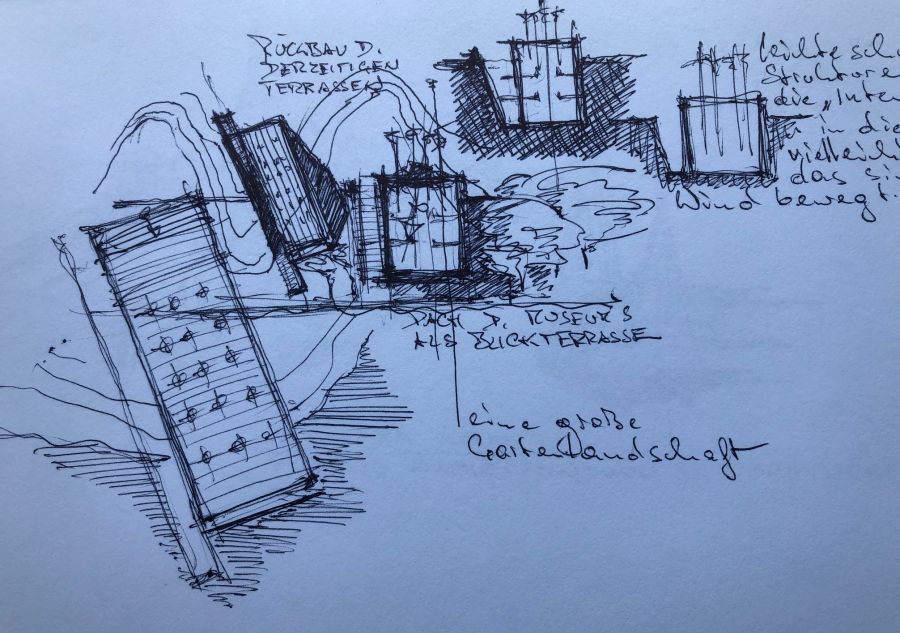 RÜCKBAU D.
DERZEITIGEN
TERRASSEN
leichte sch
Strukturen
die „Inter
in die
vielleicht
das si
Wind bewegt.
DACH D. MUSEUMS
ALS BLICKTERRASSE
eine große
Gartenlandschaft